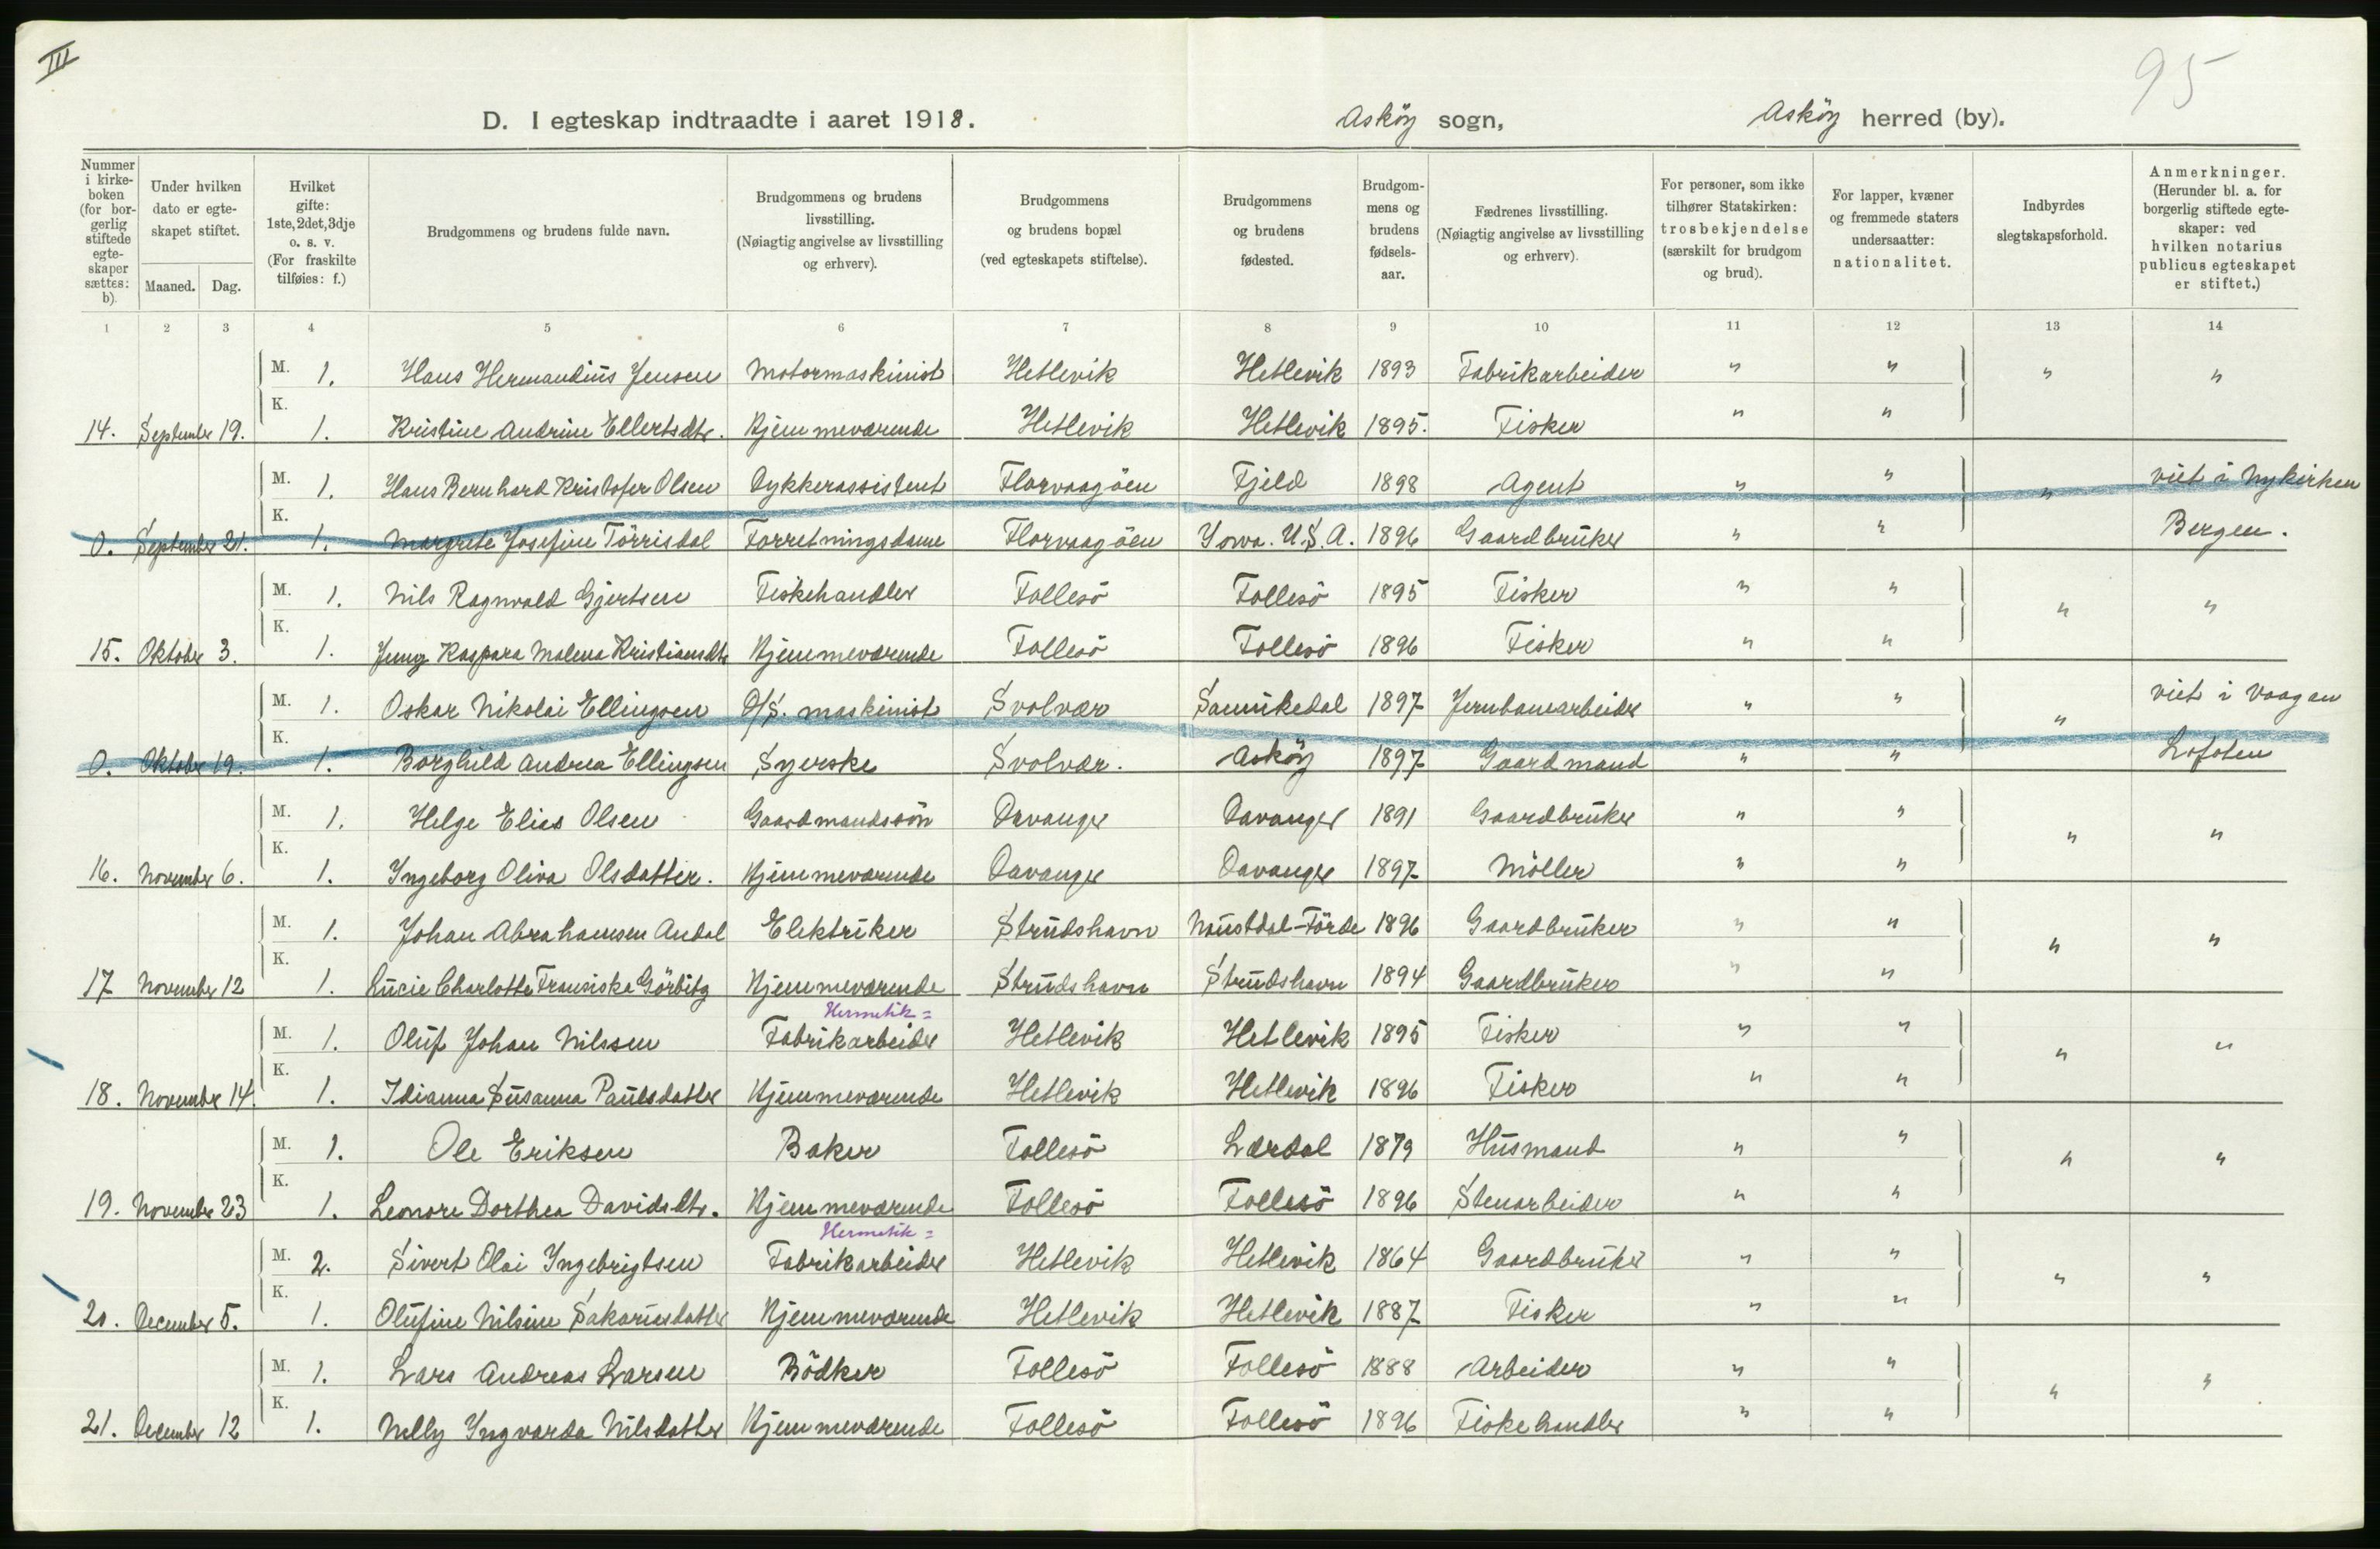 III
95
D. I egteskap indtraadte i aaret 1918. Asköy sogn, Asköy herred (by).
Nummer i kirkeboken (for borgerlig stiftede egteskaper sættes: b). Under hvilken dato er egteskapet stiftet. Maaned. Dag. Hvilket gifte: 1ste, 2det, 3dje o. s. v. (For fraskilte tilføies: f.) Brudgommens og brudens fulde navn. Brudgommens og brudens livsstilling. (Nøiagtig angivelse av livsstilling og erhverv). Brudgommens og brudens bopæl (ved egteskapets stiftelse). Brudgommens og brudens fødested. Brudgommens og brudens fødselsaar. Fædrenes livsstilling. (Nøiagtig angivelse av livsstilling og erhverv). For personer, som ikke tilhører Statskirken: trosbekjendelse (særskilt for brudgom og brud). For lapper, kvæner og fremmede staters undersaatter: nationalitet. Indbyrdes slegtskapsforhold. Anmerkninger. (Herunder bl. a. for borgerlig stiftede egteskaper: ved hvilken notarius publicus egteskapet er stiftet.)
1 2 3 4 5 6 7 8 9 10 11 12 13 14
M. 1. Hans Hermandius Jensen Motormaskinist Hetlevik Hetlevik 1893 Fabrikarbeider " " " "
14. September 19. K. 1. Kristine Andrine Ellertsdtr. Hjemmeværende Hetlevik Hetlevik 1895. Fisker " "
M. 1. Hans Bernhard Kristofer Olsen Dykkerassistent Florvaagöen Fjeld 1898 Agent " " " viet i Nykirken
0. September 21. K. 1. Margrete Josefine Törrisdal Forretningsdame Florvaagöen Iowa. U.S.A. 1896 Gaardbruker " " Bergen.
M. 1. Nils Ragnvald Gjertsen Fiskehandler Follesö Follesö 1895 Fisker " " " "
15. Oktober 3. K. 1. Jenny Kaspara Malena Kristiansdtr Hjemmeværende Follesö Follesö 1896 Fisker " "
M. 1. Oskar Nikolai Ellingsen D/S. maskinist Svolvær Samnkedal 1897 Jernbanearbeider " " " viet i Vaagan
0. Oktober 19. K. 1. Borghild Andrea Ellingsen Syerske Svolvær. Asköy 1897 Gaardmand " " Lofoten
M. 1. Helge Elias Olsen Gaardmandssön Davanger Davanger 1891 Gaardbruker " " " "
16. November 6. K. 1. Ingeborg Oliva Olsdatter. Hjemmeværende Davanger Davanger 1897 Möller " "
M. 1. Johan Abrahamsen Andal Elektriker Strudshavn Naustdal-Förde 1896 Gaardbruker " " " "
17 November 12 K. 1. Lucie Charlotte Fransiska Görbitz Hjemmeværende Strudshavn Strudshavn 1894 Gaardbruker " "
Hermetik=
M. 1. Oluf Johan Nilssen Fabrikarbeider Hetlevik Hetlevik 1895 Fisker " " " "
18. November 14. K. 1. Idianna Susanna Paulsdatter Hjemmeværende Hetlevik Hetlevik 1896 Fisker " "
M. 1. Ole Eriksen Baker Follesö Lærdal 1879 Husmand " " " "
19. November 23 K. 1. Leonore Dorthea Davidsdtr. Hjemmeværende Follesö Follesö 1896 Stenarbeider " "
Hermetik=
M. 2. Sivert Olai Ingebrigtsen Fabrikarbeider Hetlevik Hetlevik 1864 Gaardbruker " " " "
20. December 5. K. 1. Olufine Nilsine Sakariasdatter Hjemmeværende Hetlevik Hetlevik 1887 Fisker " "
M. 1. Lars Andreas Larsen Bödker Follesö Follesö 1888 Arbeider " " " "
21. December 12 K. 1. Nelly Ingvarda Nilsdatter Hjemmeværende Follesö Follesö 1896 Fiskehandler " "